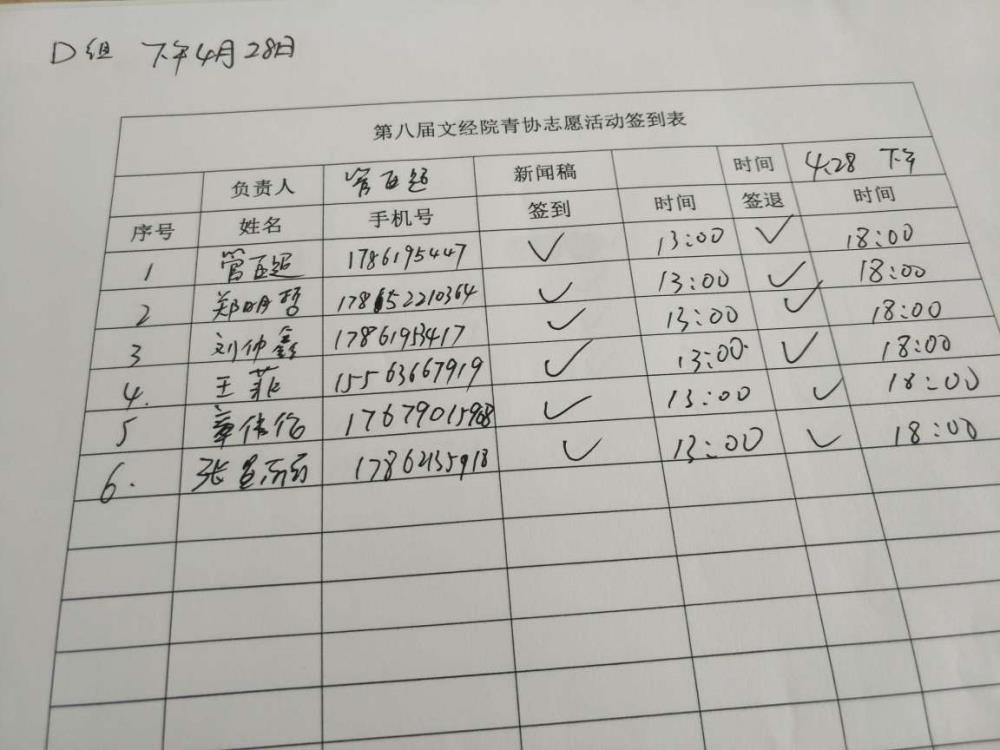 D组 下午4月28日
第八届文经院青协志愿活动签到表
负责人 管百超 新闻稿 时间 4.28 下午
序号 姓名 手机号 签到 时间 签退 时间
1 管百超 1786195447 ✓ 13:00 ✓ 18:00
2 郑明哲 ✓ 13:00 ✓ 18:00
3 刘仲鑫 17861953417 ✓ 13:00 ✓ 18:00
4. 王菲 15563667919 ✓ 13:00 ✓ 18:00
5 章伟 17679015968 ✓ 13:00 ✓ 18:00
6. 张 17862135918 ✓ 13:00 ✓ 18:00